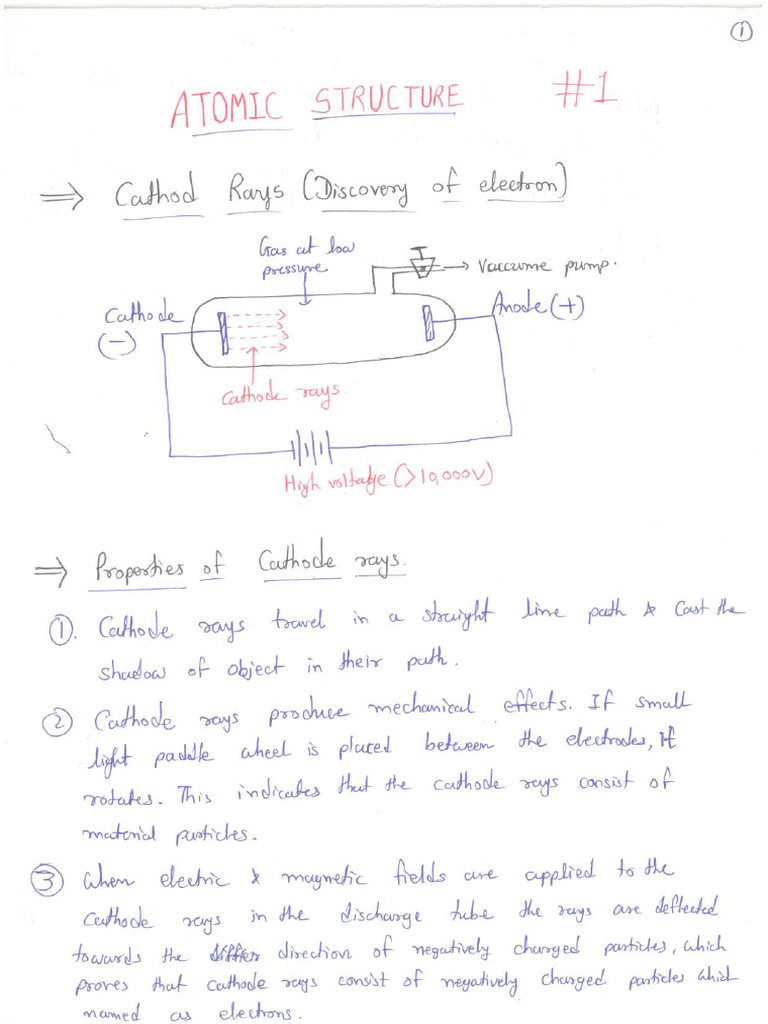 ①
ATOMIC STRUCTURE #1
⇒ Cathod Rays (Discovery of electron)
Gas at low
pressure
→ Vaccume pump.
Cathode
(-)
Anode (+)
Cathode rays.
High voltage (>10,000V)
⇒ Properties of Cathode rays.
①. Cathode rays travel in a straight line path & Cast the
shadow of object in their path.
② Cathode rays produce mechanical effects. If small
light paddle wheel is placed between the electrodes, it
rotates. This indicates that the cathode rays consist of
material particles.
③ When electric & magnetic fields are applied to the
Cathode rays in the discharge tube the rays are deflected
towards the direction of negatively charged particles, which
proves that cathode rays consist of negatively charged particles which
named as electrons.